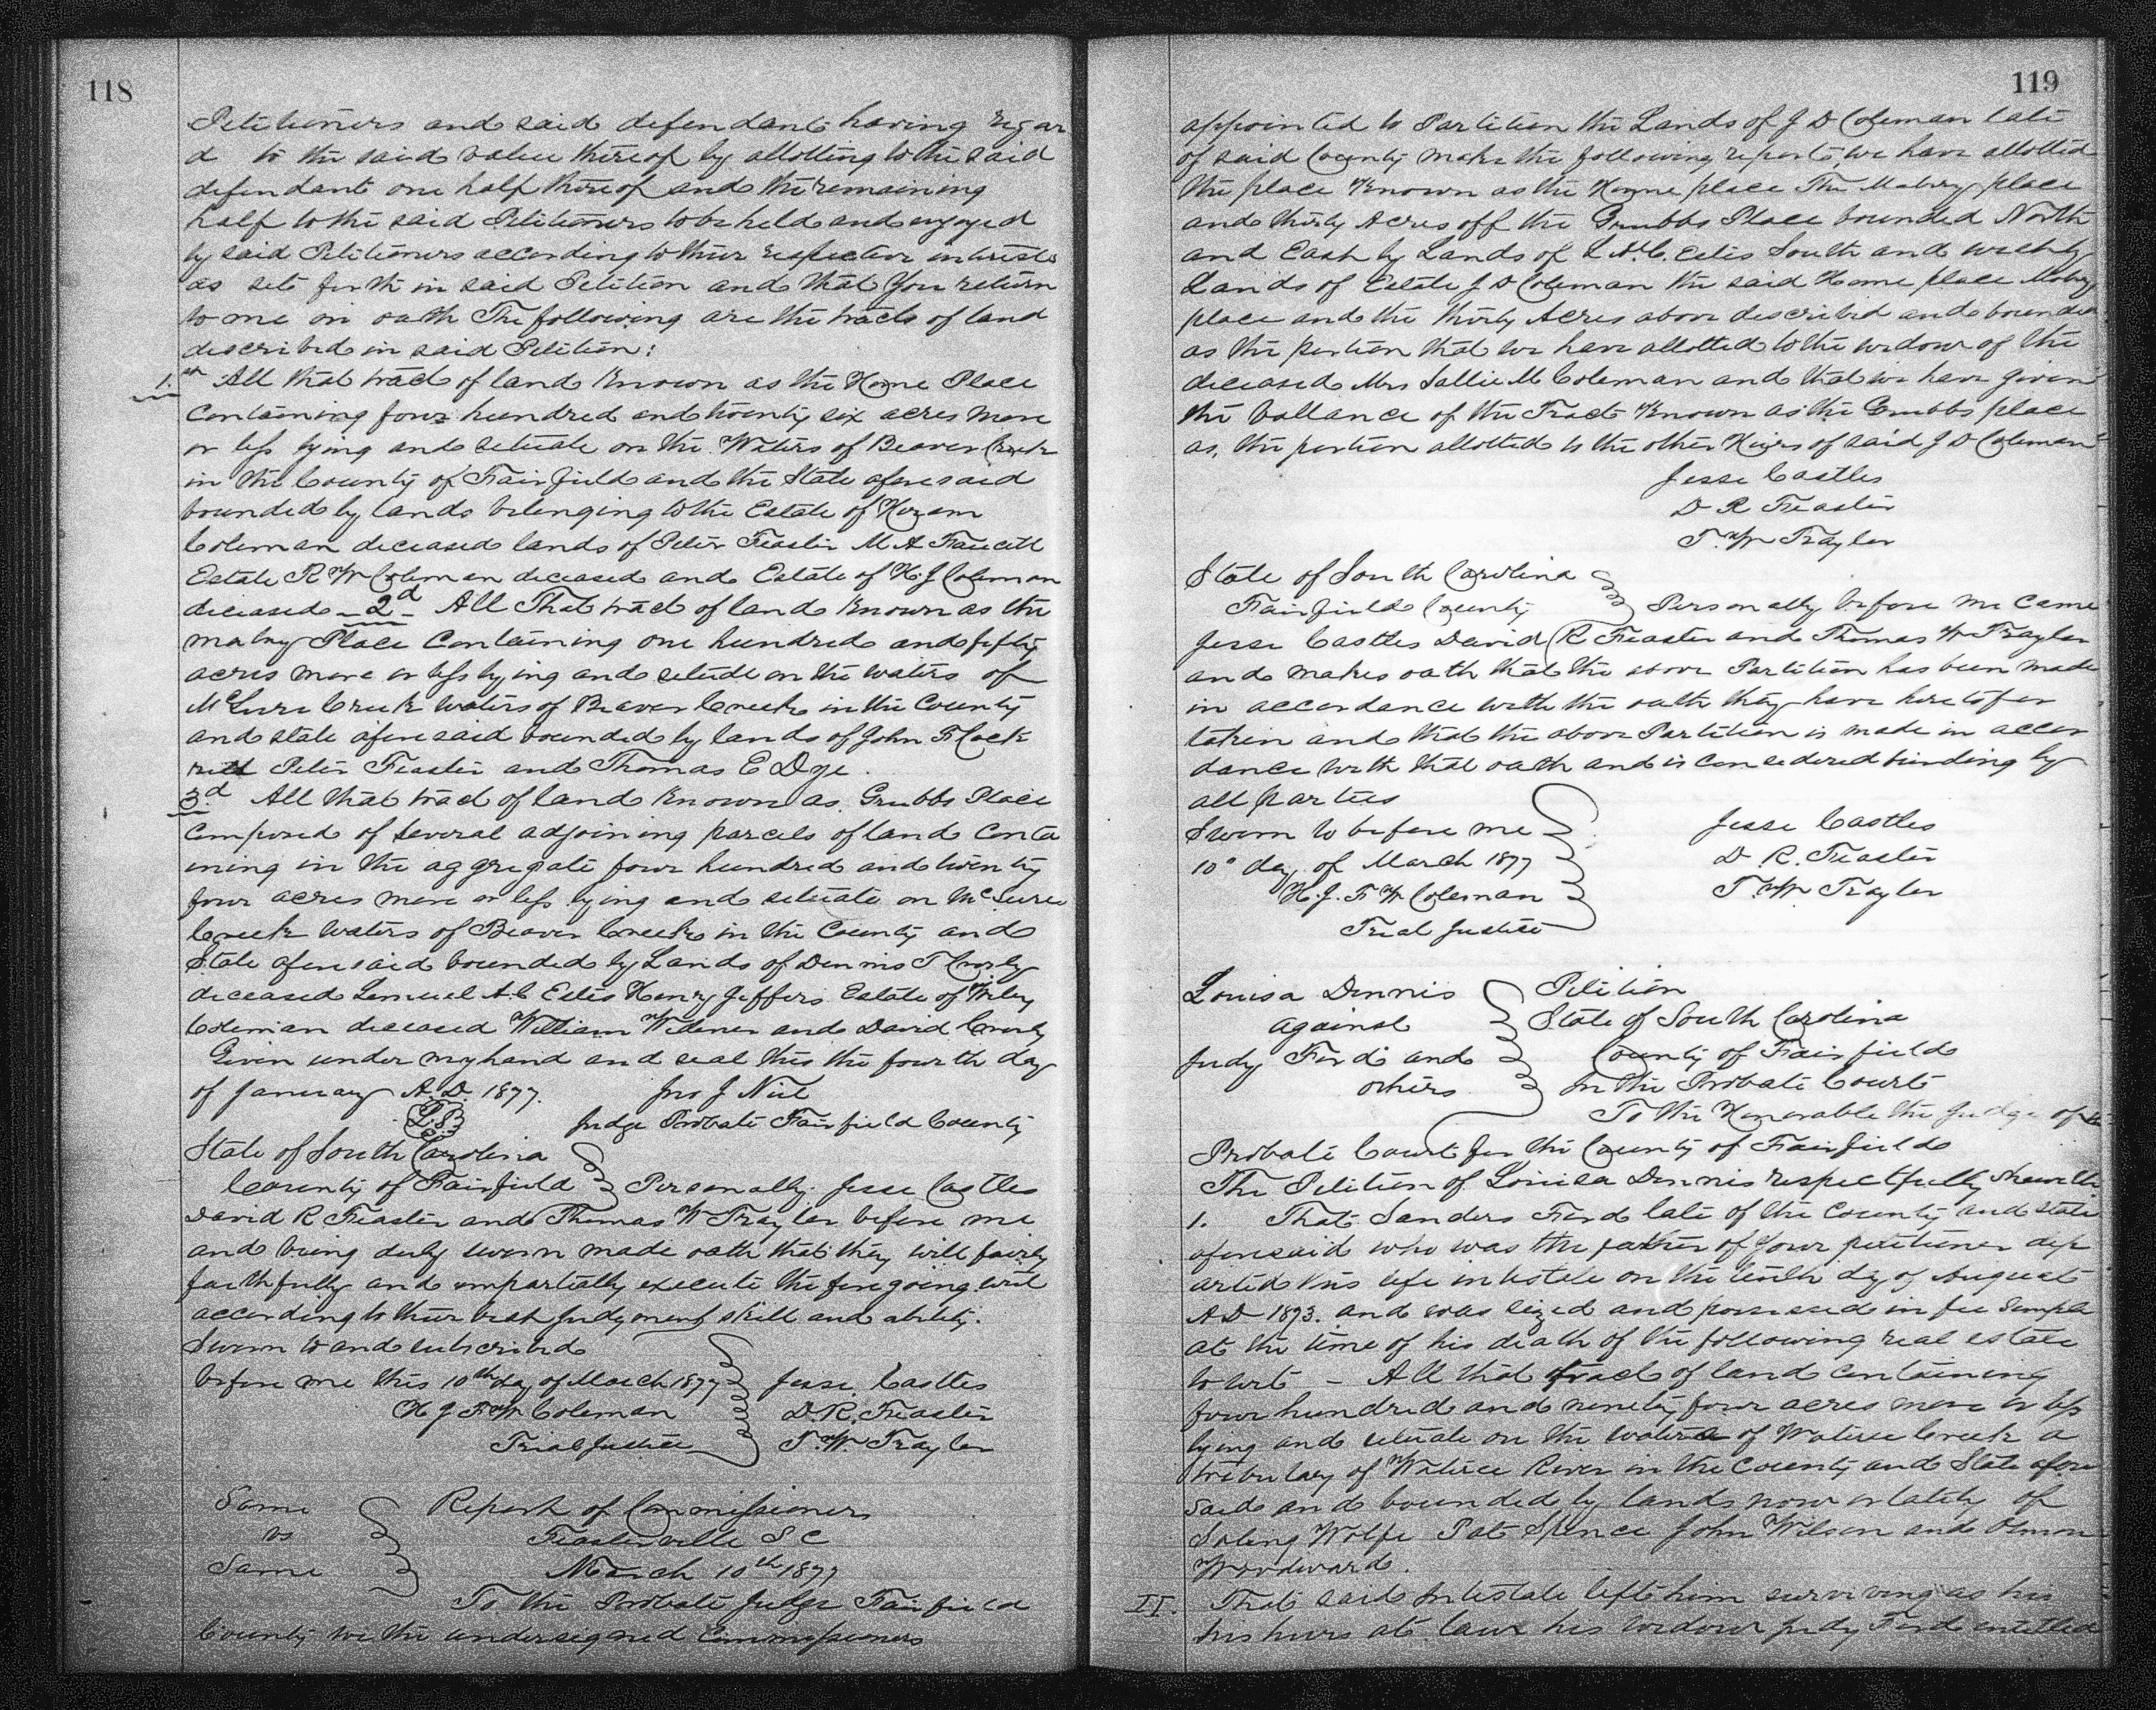 118
Petitioners and said defendant having regar
d to the said value thereof by allotting to the said
defendant one half thereof and the remaining
half to the said Petitioners to be held and enjoyed
by said Petitioners according to their respective interests
as set forth in said Petition and that you return
to me on oath The following are the tracts of land
described in said Petition:
1.st All that tract of land known as the Home Place
Containing four hundred and twenty six acres more
or less lying and situate on the Waters of Beaver Creek
in the County of Fairfield and the State aforesaid
bounded by lands belonging to the Estate of Hiram
Coleman deceased lands of Peter Feaster M A Faucett
Estate R W Coleman deceased and Estate of H. J Coleman
deceased - 2d - All That tract of land known as the
mabry Place Containing one hundred and fifty
acres more or less lying and situate on the waters of
McLure Creek waters of Beaver Creek in the County
and state aforesaid bounded by lands of John F Cock
rell Peter Feaster and Thomas E Dye.
3d All that tract of land known as Grubbs Place
Composed of several adjoining parcels of land Conta
ining in the aggregate four hundred and twenty
four acres more or less lying and situate on McLure
Creek waters of Beaver Creek in the County and
State aforesaid bounded by Lands of Dennis T Crosby
deceased Lemuel A.C Estes Henry Jeffers Estate of Wiley
Coleman deceased William Widener and David Crosby
Given under my hand and seal this the fourth day
of January A.D. 1877. Jno J Neil
L.S. Judge Probate Fairfield County
State of South Carolina
County of Fairfield Personally Jesse Castles
David R Feaster and Thomas W Traylor before me
and being duly sworn made oath that they will fairly
faithfully and impartially execute the foregoing writ
according to their best judgment skill and ability.
Sworn to and subscribed
before me this 10th day of March 1877 Jesse Castles
H J F W Coleman D. R. Feaster
Trial Justice T. W. Traylor
Same Report of Commissioners
vs Feasterville S C
Same March 10th 1877
To the Probate Judge Fairfield
County we the undersigned Commissioners
119
appointed to Partition the Lands of J D Coleman late
of said County make the following report, we have allotted
the place Known as the Home place The Mabry place
and thirty Acres off the Grubbs Place bounded North
and East by Lands of L. A. C. Estes South and west by
Lands of Estate J D Coleman the said Home place Mabry
place and the thirty Acres above described and bounded
as the portion that we have allotted to the widow of the
deceased Mrs Sallie M Coleman and that we have given
the ballance of the Tract Known as the Grubbs place
as, the portion allotted to the other Heirs of said J D Coleman
Jesse Castles
D R Feaster
T. W Traylor
State of South Carolina
Fairfield County Personally before me came
Jesse Castles David R Feaster and Thomas W Traylor
and makes oath that the above Partition has been made
in accordance with the oath they have heretofor
taken and that the above Partition is made in accor
dance with that oath and is considered binding by
all parties
Sworn to before me Jesse Castles
10th day of March 1877 D. R. Feaster
H. J. F W Coleman T. W Traylor
Trial Justice
Louisa Dennis Petition
against State of South Carolina
Judy Ford and County of Fairfield
others In the Probate Court
To the Honorable the Judge of the
Probate Court for the County of Fairfield
The Petition of Louisa Dennis respectfully sheweth
1. That Sanders Ford late of the County and State
aforesaid who was the father of your petitioner dep
arted this life intestate on the tenth day of August
AD 1873. and was seized and possessed in fee simple
at the time of his death of the following real estate
to wit - All that tract of land containing
four hundred and ninety four acres more or less
lying and situate on the waters of Wateree Creek a
tributary of Wateree River in the County and State afore
said and bounded by lands now or lately of
Wolfe Pat Spence John Wilson and
Woodward.
II. That said Intestate left him surviving as his
his heirs at law his widow Judy Ford entitled